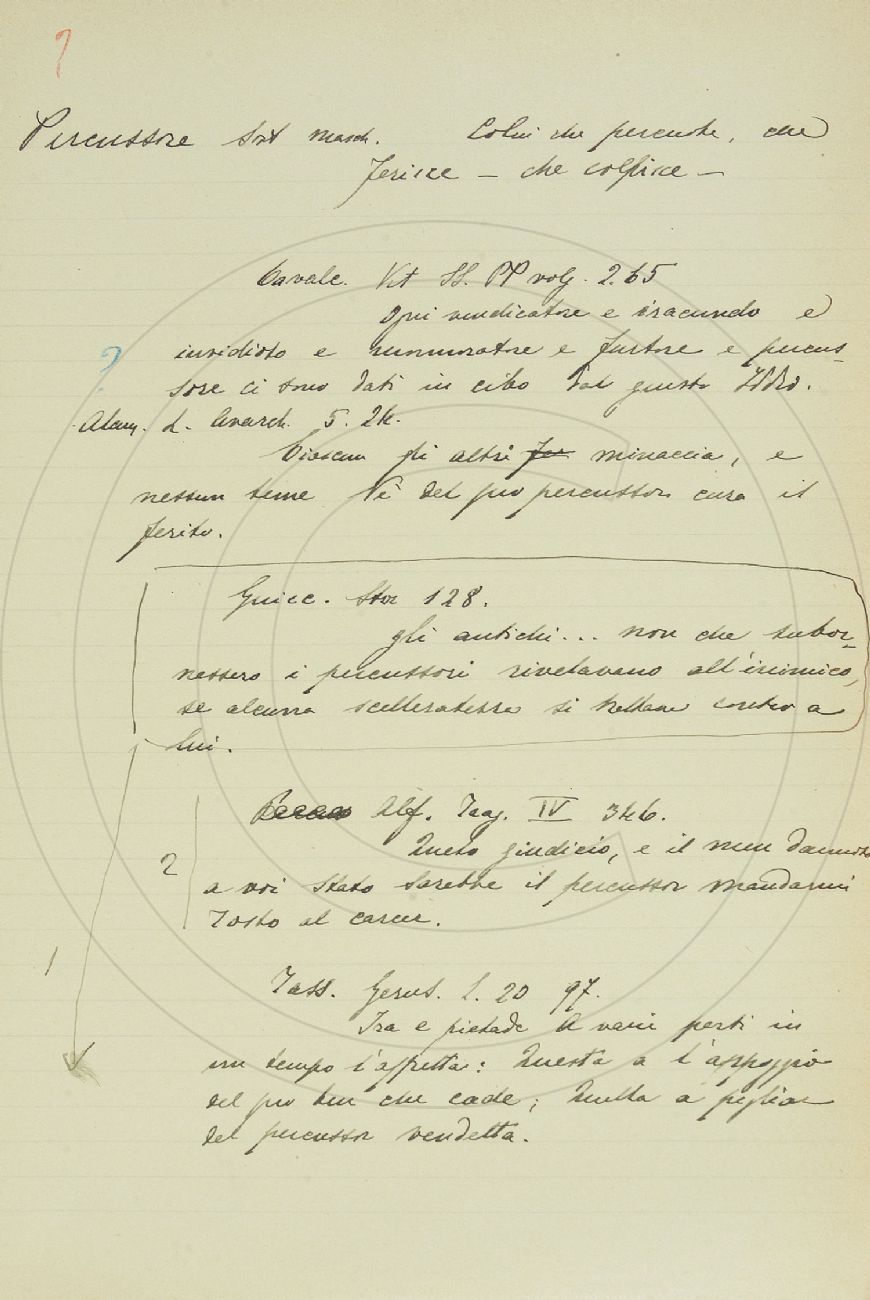 ?
Percussore Sost masch. Colui che percuote, che
ferisce — che colpisce —
Cavalc. Vit SS. PP volg. 2.65
Ogni vendicatore e iracundo e
?
invidioso e mormoratore e furtore e percus-
sore ci sono dati in cibo dal giusto Iddio.
Alam. L. Avarch. 5. 24.
Ciascun gli altri minaccia, e
nessun teme Nè del suo percussor cura il
ferito.
Guicc. Stor 128.
gli antichi... non che subor-
nassero i percussori rivelavano all'inimico,
se alcuna scelleratezza si trattava contro a
lui.
Alf. Trag. IV 346.
2
giudicio, e il men dannoso
a voi stato sarebbe il percussor mandarmi
Tosto al carcer.
1
Tass. Gerus. l. 20 97.
Ira e pietade A varie parti in
un tempo l'affretta: Questa a l'appoggio
del suo ben che cade; Quella a pigliar
del percussor vendetta.